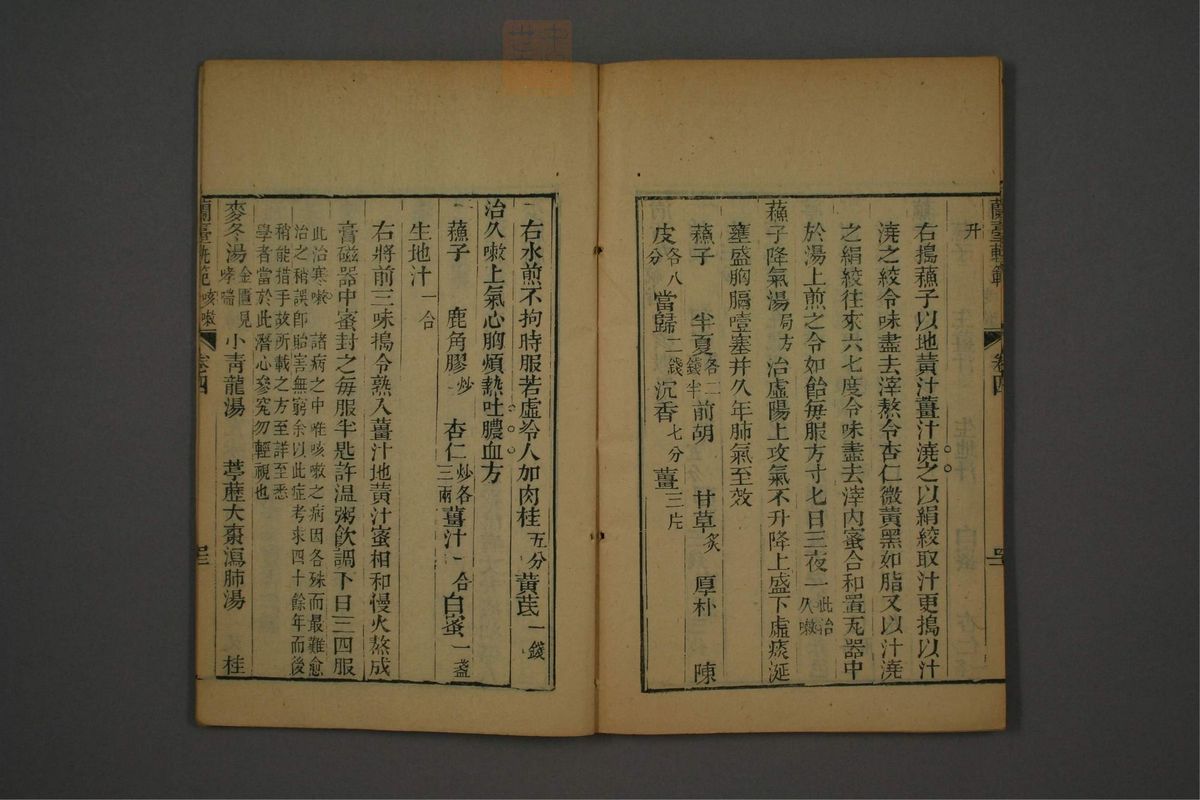 蘭臺軌範 卷四
升
右搗蘓子以地黃汁薑汁澆之以絹絞取汁更搗以汁
澆之絞令味盡去滓熬令杏仁微黃黑如脂又以汁澆
之絹絞往來六七度令味盡去滓內蜜合和置瓦器中
於湯上煎之令如飴每服方寸匕日三夜一此治久嗽
蘓子降氣湯局方 治虛陽上攻氣不升降上盛下虛痰涎
壅盛胸膈噎塞并久年肺氣至效
蘓子 半夏各二錢半 前胡 甘草炙 厚朴 陳
皮各八分 當歸二錢 沉香七分 薑三片
右水煎不拘時服若虛冷人加肉桂五分黃芪一錢
治久嗽上氣心胸煩熱吐膿血方
蘓子 鹿角膠炒 杏仁炒各三兩 薑汁一合 白蜜一盞
生地汁一合
右將前三味搗令熟入薑汁地黃汁蜜相和慢火熬成
膏磁器中蜜封之每服半匙許温粥飲調下日三四服
此治寒嗽 諸病之中唯咳嗽之病因各殊而最難愈
治之稍誤卽貽害無窮余以此症考求四十餘年而後
稍能措手故所載之方至詳至悉
學者當於此潛心參究勿輕視也
麥冬湯金匱見哮喘 小青龍湯 葶藶大棗瀉肺湯 桂
蘭臺軌範 咳嗽 卷四